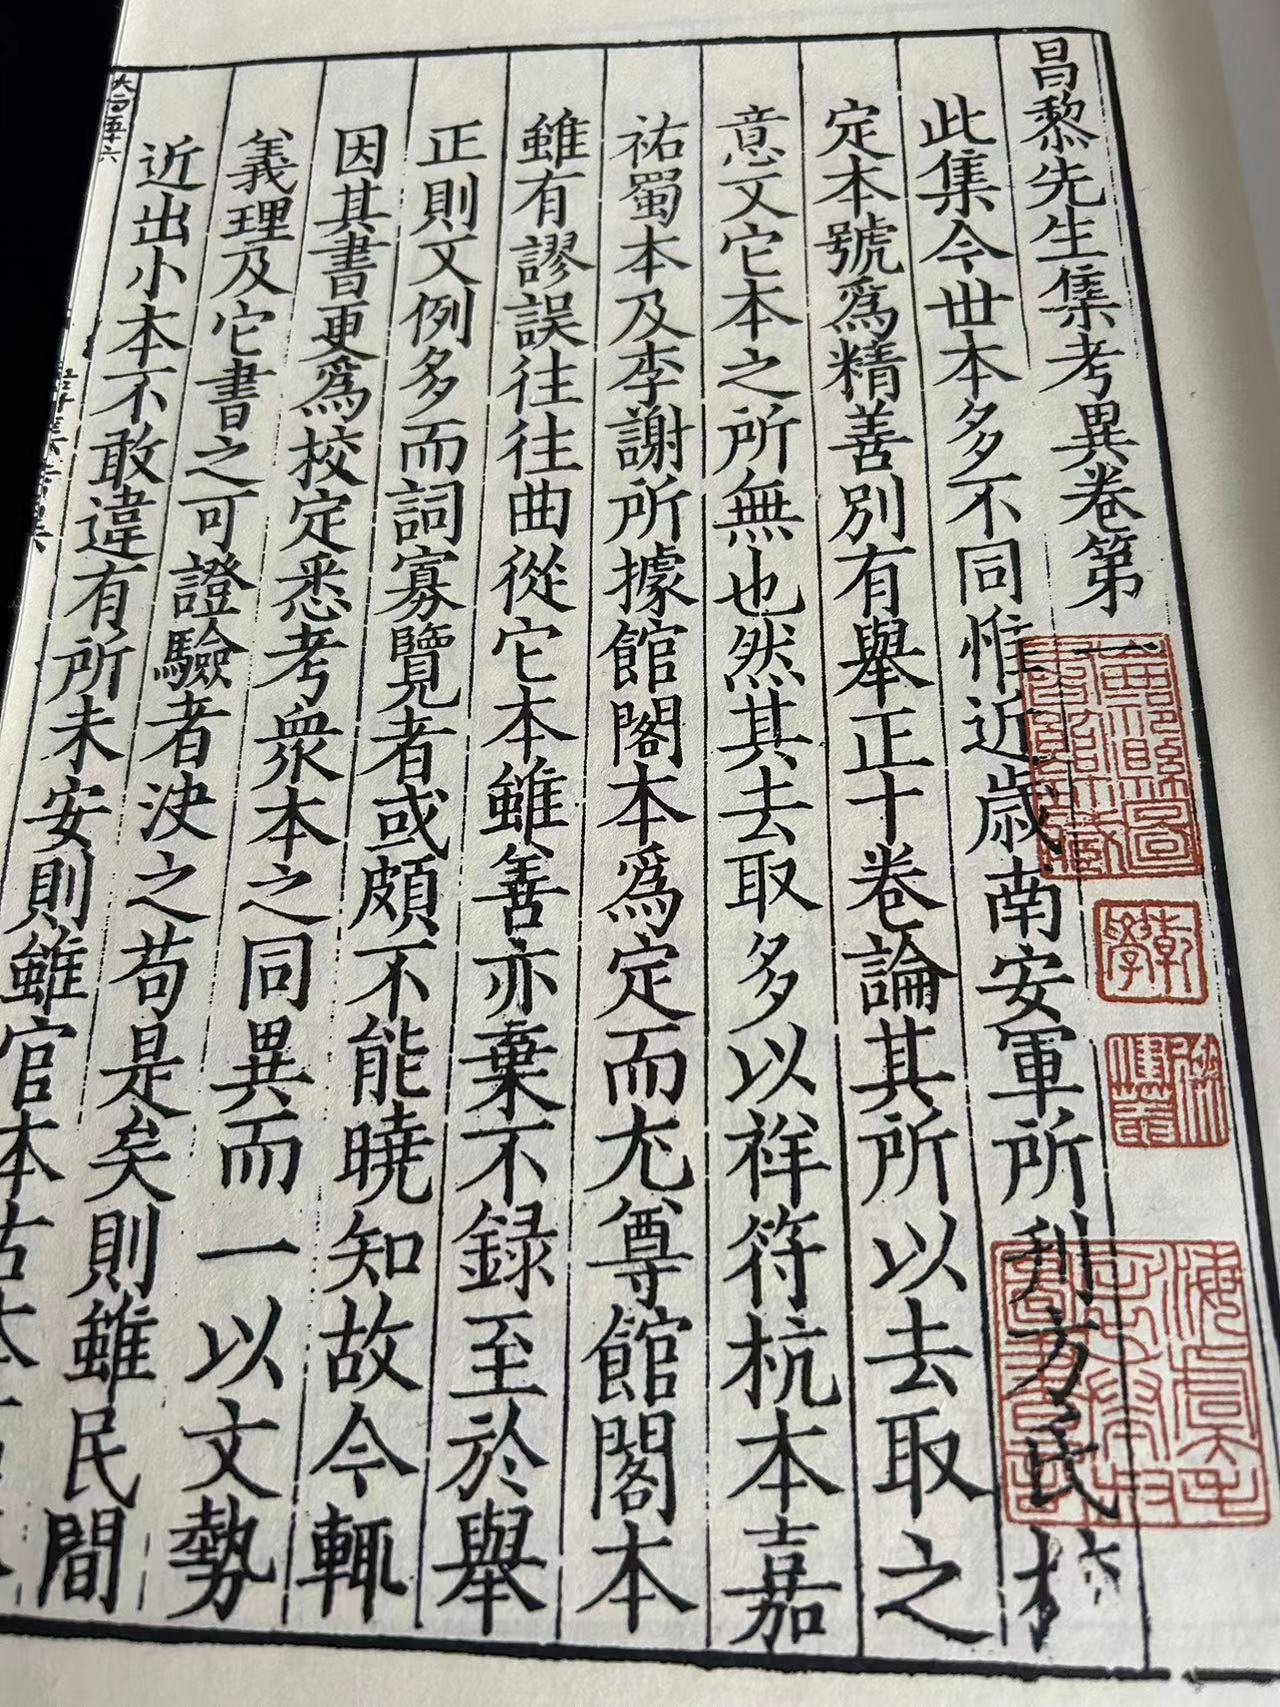 昌黎先生集考異卷第一
此集今世本多不同惟近歳南安軍所刋方氏校
定本號爲精善別有舉正十卷論其所以去取之
意文它本之所無也然其去取多以祥符杭本嘉
祐蜀本及李謝所據館閣本爲定而尤尊館閣本
雖有謬誤往往曲從它本雖善亦棄不録至於舉
正則文例多而詞寡覽者或頗不能曉知故今輒
因其書更爲校定悉考衆本之同異而一以文勢
義理及它書之可證驗者決之苟是矣則雖民間
近出小本不敢違有所未安則雖官本古本